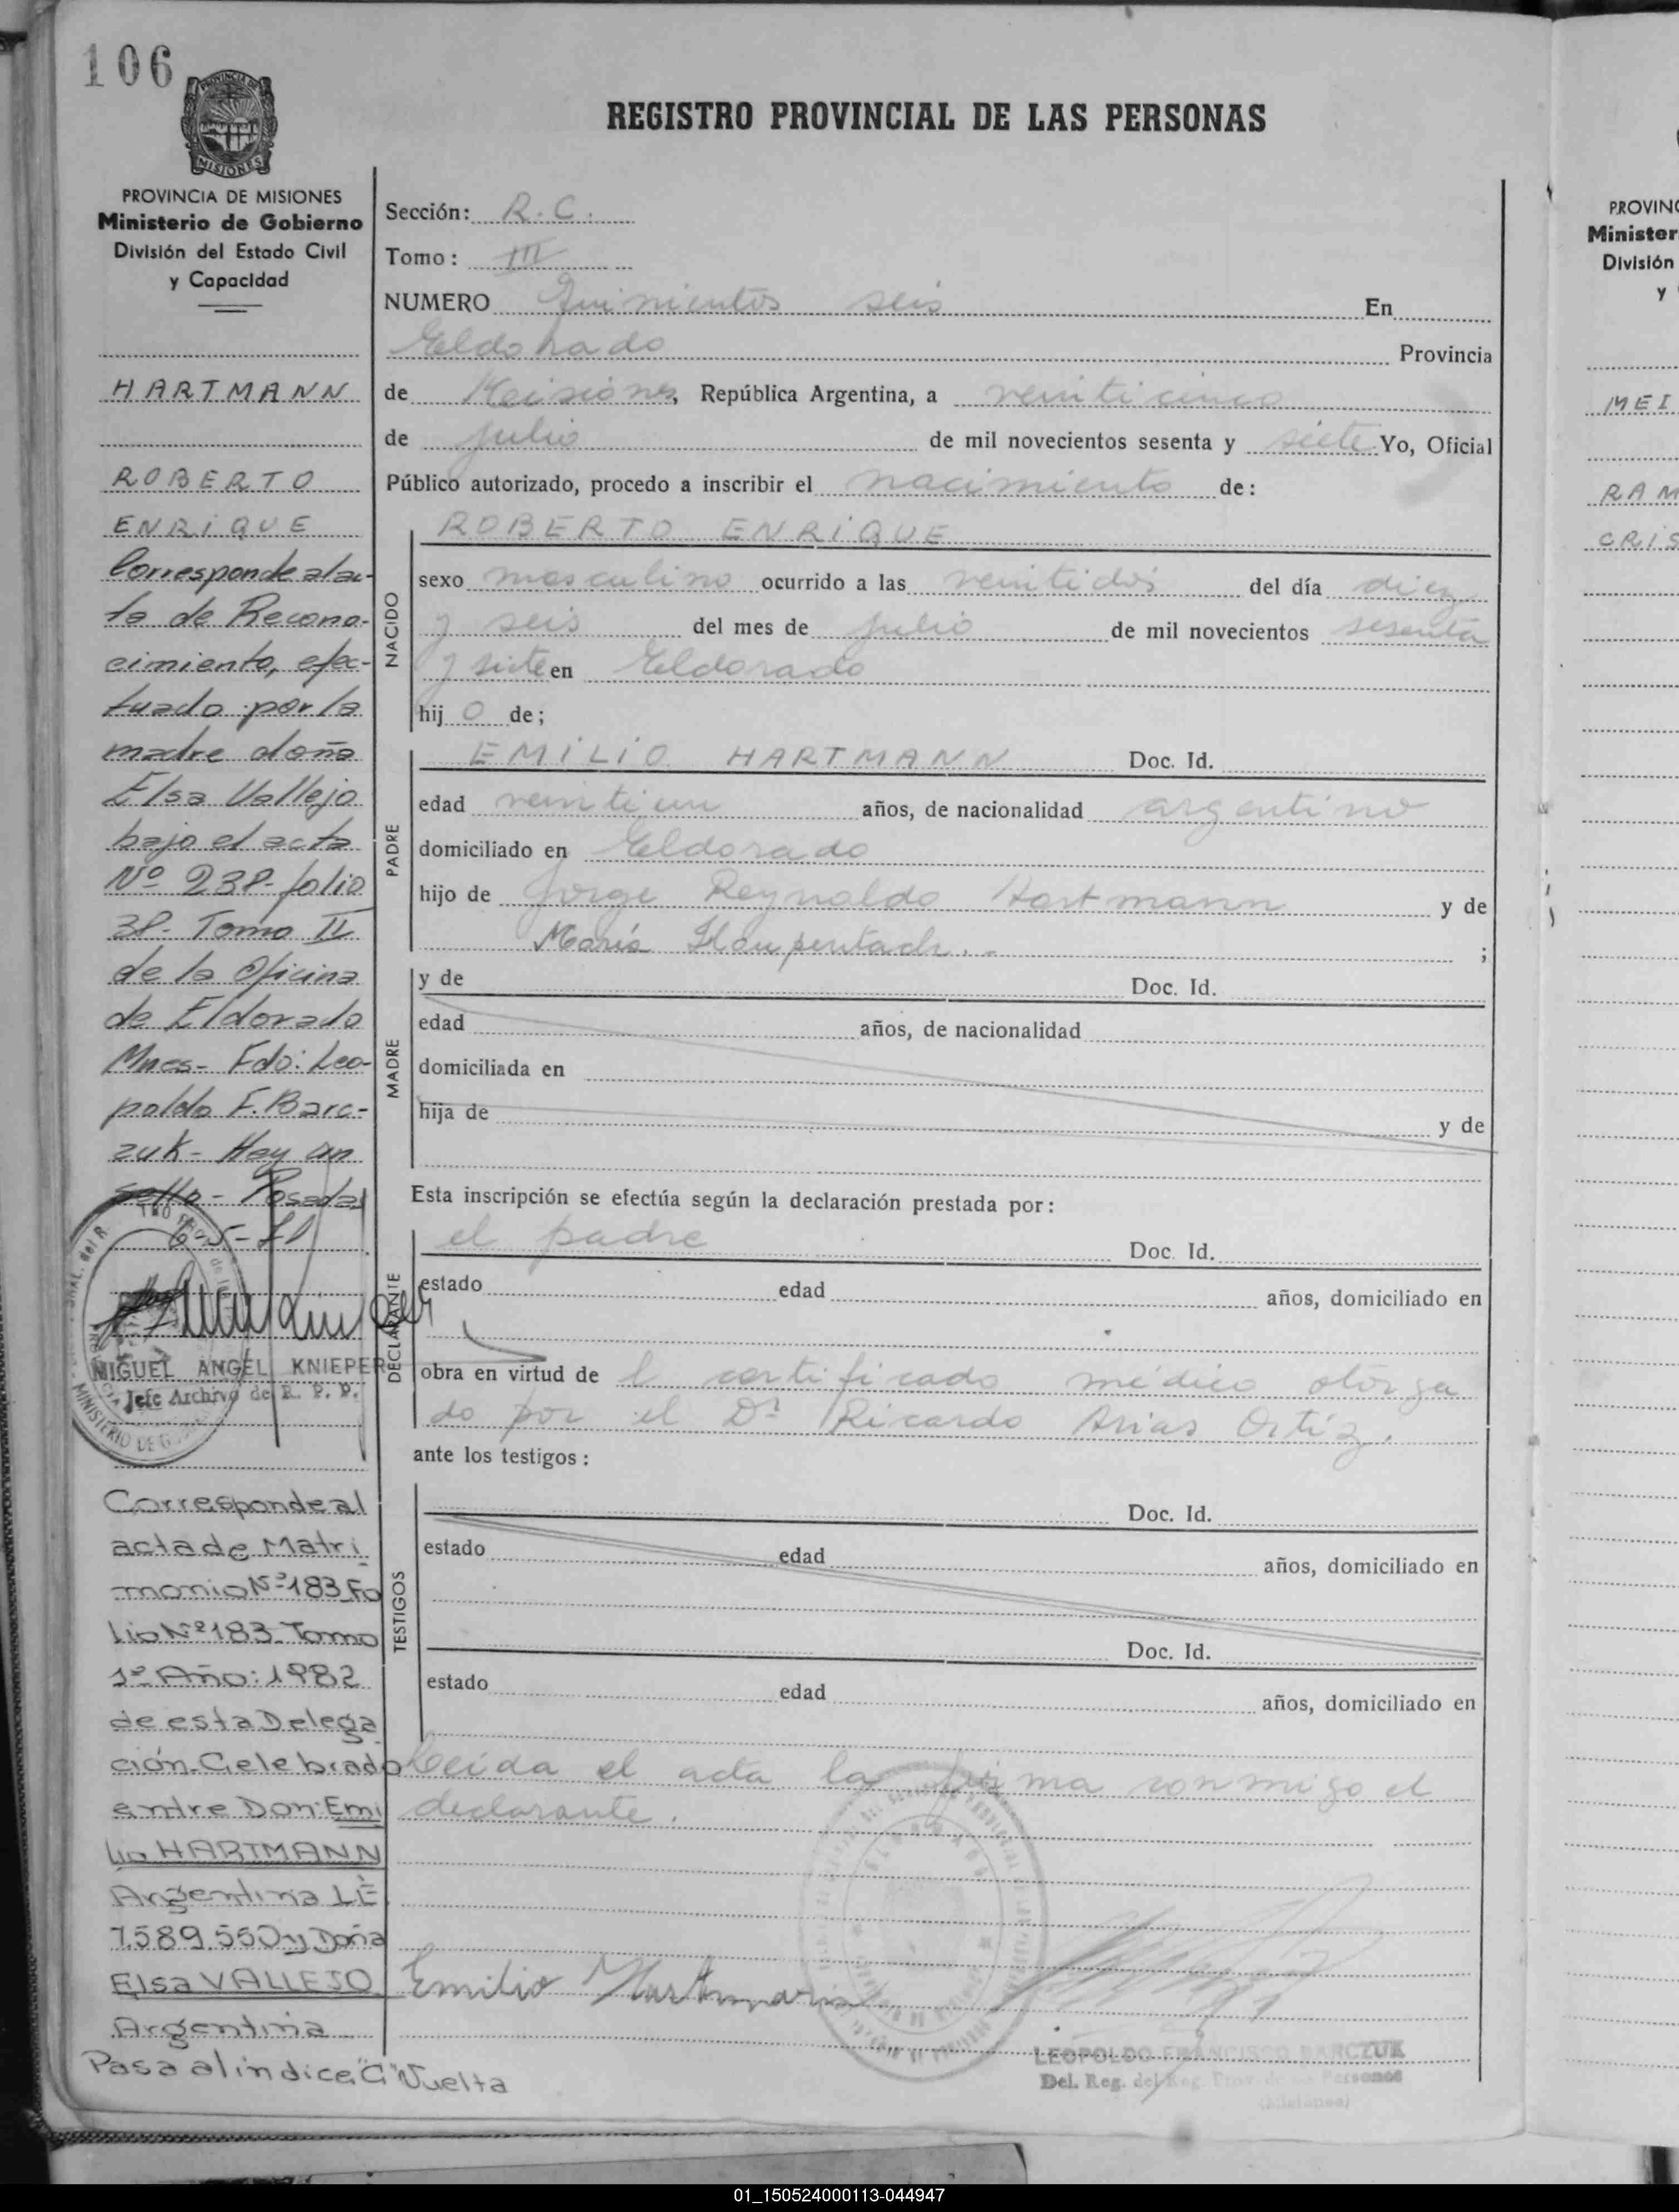 106
PROVINCIA DE MISIONES
Ministerio de Gobierno
División del Estado Civil
y Capacidad
HARTMANN
ROBERTO
ENRIQUE
Corresponde al ac-
ta de Recono-
cimiento, efec-
tuado por la
madre doña
Elsa Vallejo
bajo el acta
Nº 238- folio
38- Tomo II
de la Oficina
de Eldorado
Mnes- Fdo: Leo-
poldo F. Barc-
zuk- Hay un
sello- Posadas
MIGUEL ANGEL KNIEPER
Jefe Archivo de R. P. P.
Corresponde al
acta de Matri
monio Nº 183 Fo
lio Nº 183 Tomo
1º Año: 1982
de esta Delega
ción Celebrado
entre Don: Emi
lio HARTMANN
Argentina LE
7.589.550 y Doña
Elsa VALLEJO
Argentina
Pasa al indice "G" Vuelta
REGISTRO PROVINCIAL DE LAS PERSONAS
Sección: R.C.
Tomo: III
NUMERO Quinientos seis En
Eldorado Provincia
de Misiones, República Argentina, a veinticinco
de julio de mil novecientos sesenta y siete Yo, Oficial
Público autorizado, procedo a inscribir el nacimiento de:
NACIDO
ROBERTO ENRIQUE
sexo masculino ocurrido a las veintidos del día diez
y seis del mes de julio de mil novecientos sesenta
y siete en Eldorado
hij o de;
PADRE
EMILIO HARTMANN Doc. Id.
edad veintiun años, de nacionalidad argentino
domiciliado en Eldorado
hijo de Jorge Reynaldo Hartmann y de
María ;
MADRE
y de Doc. Id.
edad años, de nacionalidad
domiciliada en
hija de y de
Esta inscripción se efectúa según la declaración prestada por:
DECLARANTE
el padre Doc. Id.
estado edad años, domiciliado en
obra en virtud de l certificado médico otorga
do por el Dr Ricardo Arias Ortíz.
ante los testigos:
TESTIGOS
Doc. Id.
estado edad años, domiciliado en
Doc. Id.
estado edad años, domiciliado en
Leída el acta la firma conmigo el
declarante.
Emilio Hartmann
LEOPOLDO FRANCISCO BARCZUK
Del. Reg. del Reg. Prov. de las Personas
(Misiones)
PROVINC
Minister
División
y
MEI
RAM
CRIS
01_150524000113-044947